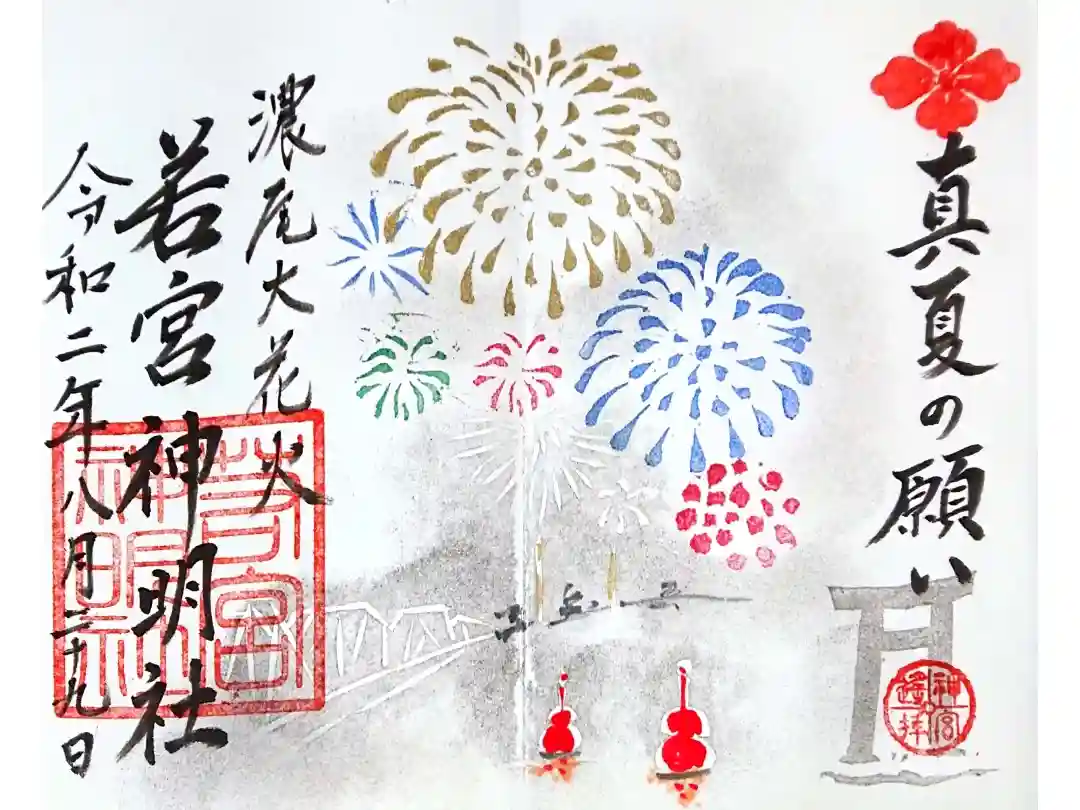 真夏の願い
濃尾大花火
若宮神明社
令和二年八月二十九日
神宮
遙拝
若宮
神明社